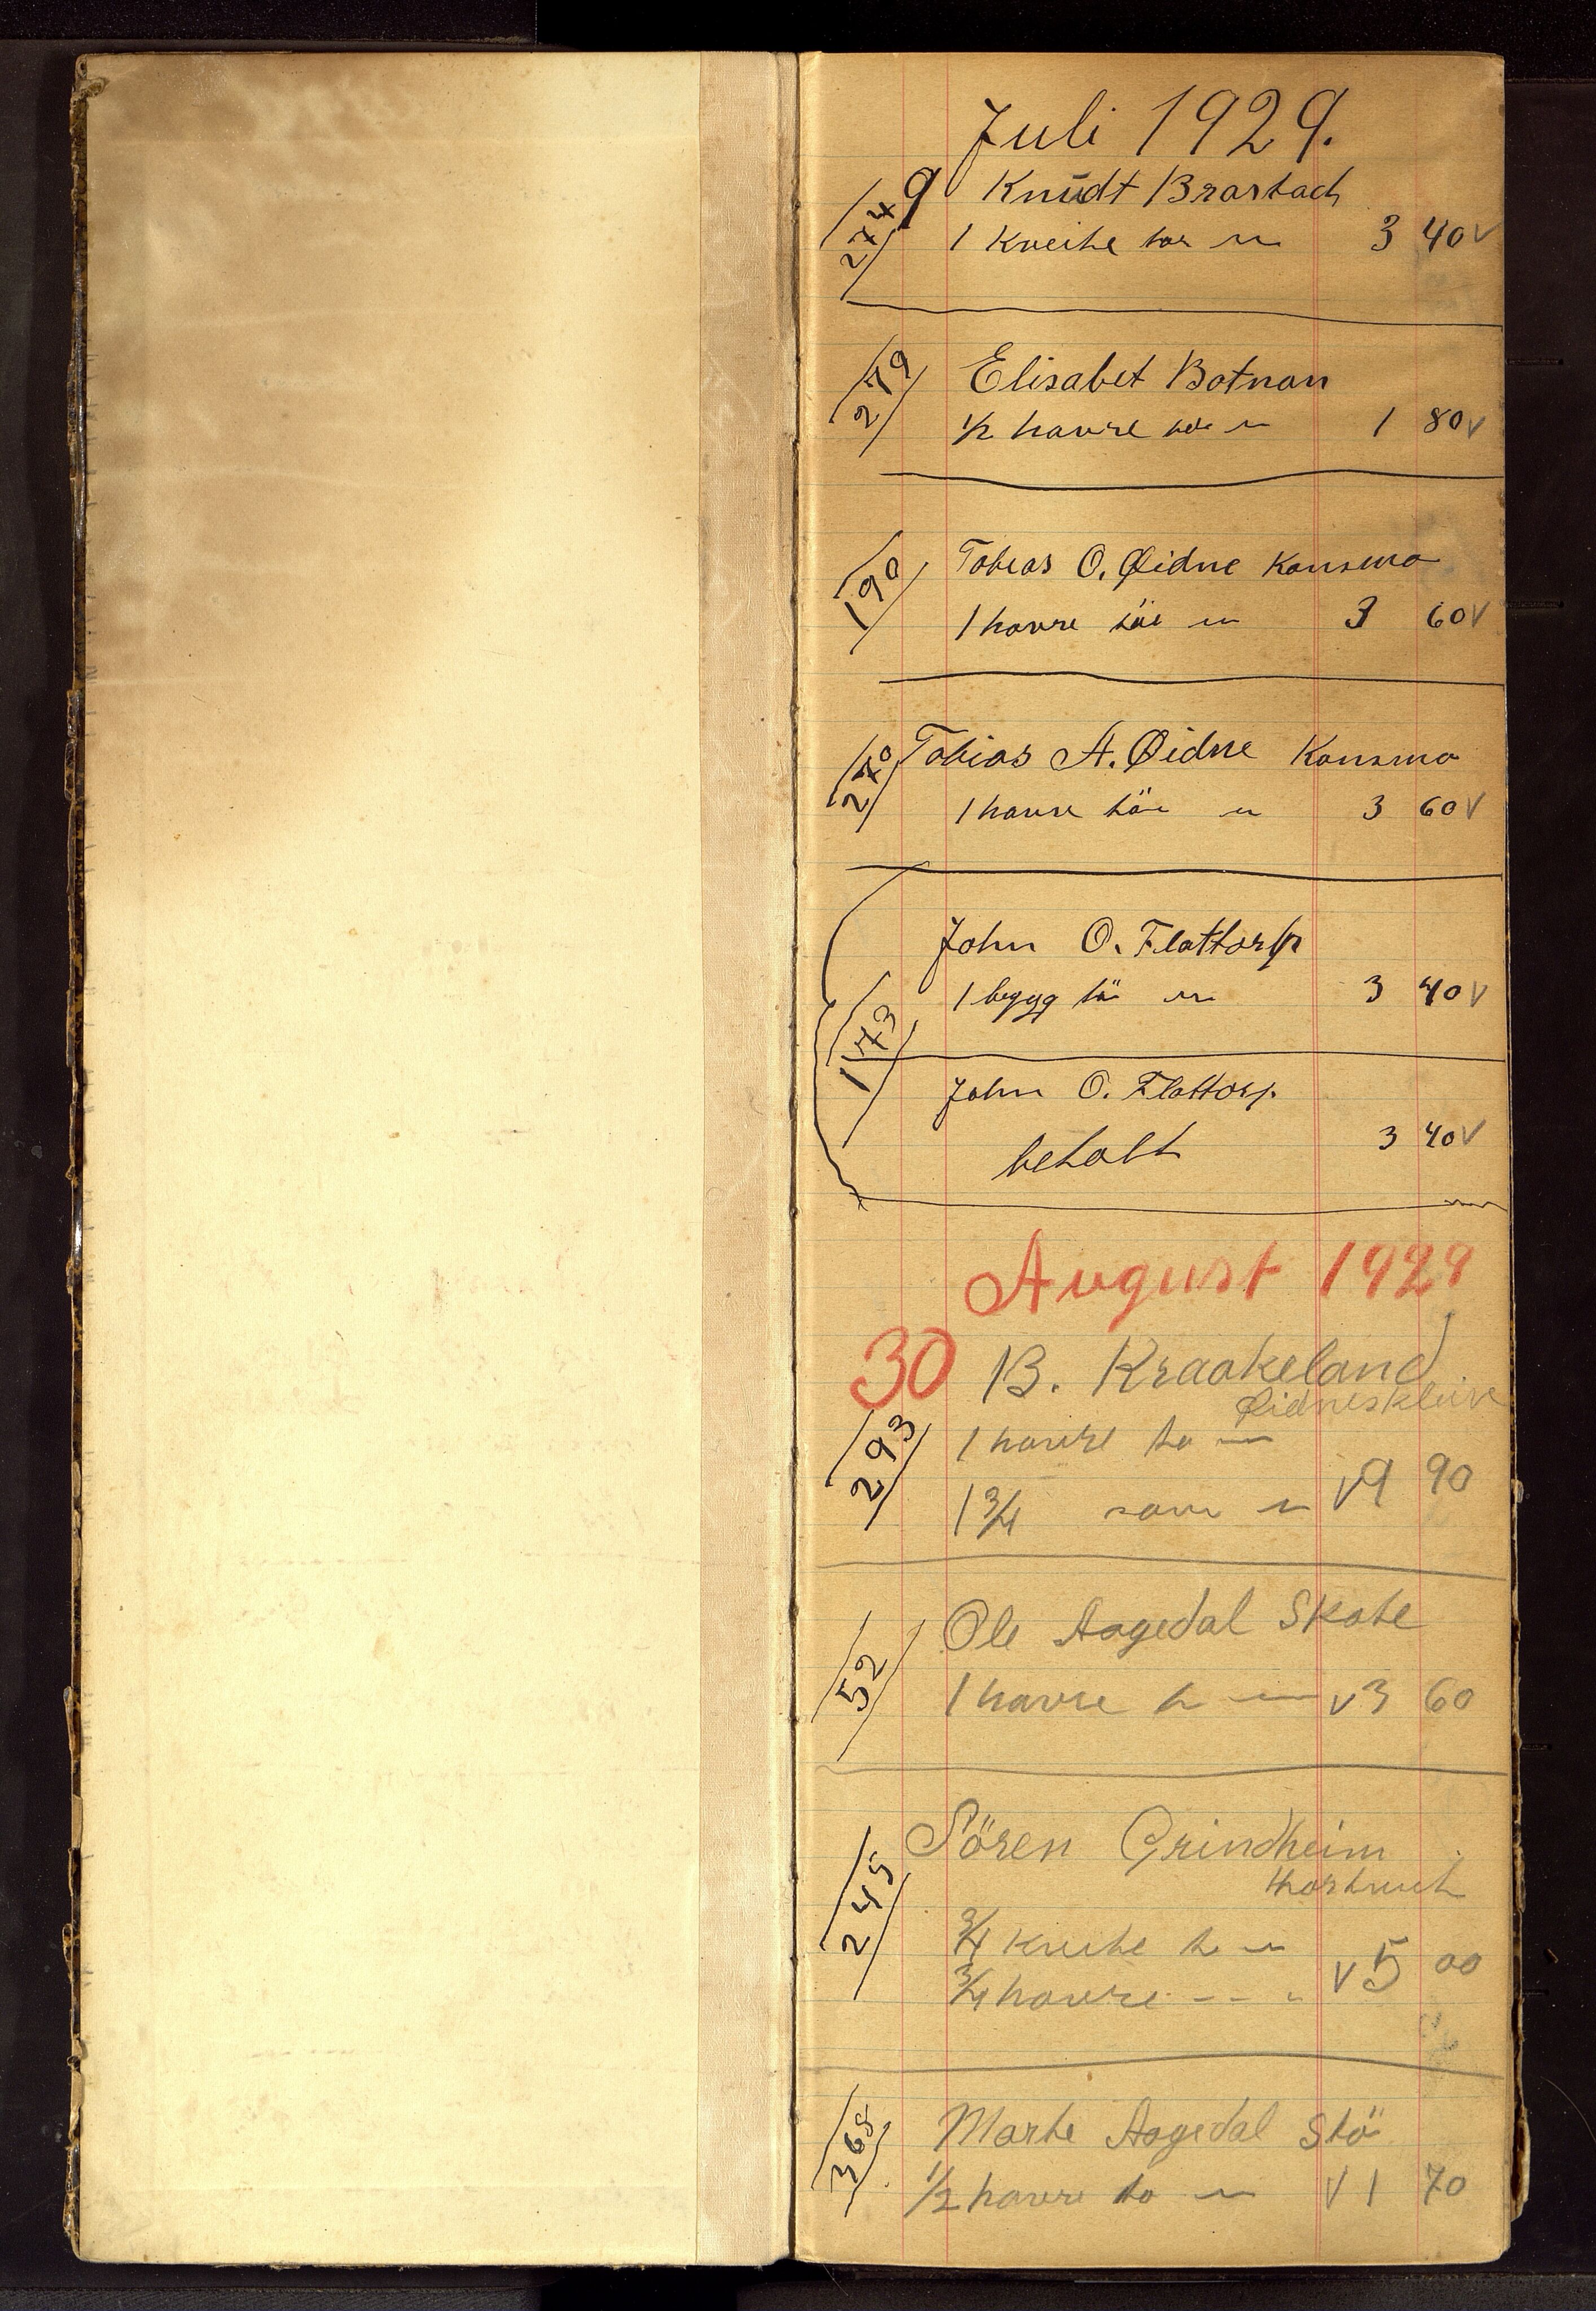 Juli 1929.
9 Knudt Brastad
274
1 Kveite tør m 3 40 v
279
Elisabet Botnan
1/2 havre m 1 80 v
190
Tobias O. Øidne Konsmo
1 havre tör m 3 60 v
270
Tobias A. Øidne Konsmo
1 havre tör m 3 60 v
John O. Flottorp
1 bygg tö m 3 40 v
173
John O. Flottorp
betalt 3 40 v
August 1929
30 B. Kraakeland
Øidneskleiv
293
1 havre to m
1 3/4 m v 9 90
52
Ole Aagedal Skote
1 havre t m v 3 60
245
Sören Grindheim
3/4 Kveite t m
3/4 havre - - " v 5 00
365
Marte Aagedal Stö
1/2 havre to m v 1 70